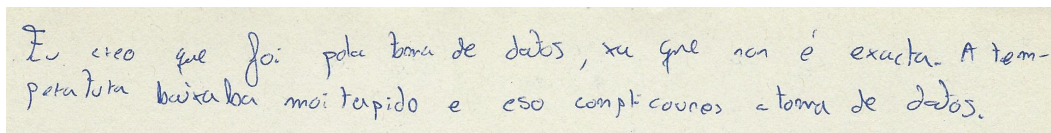 Eu creo que foi pola toma de datos, xa que non é exacta. A tem-
peratura baixaba moi rapido e eso complicounos a toma de datos.